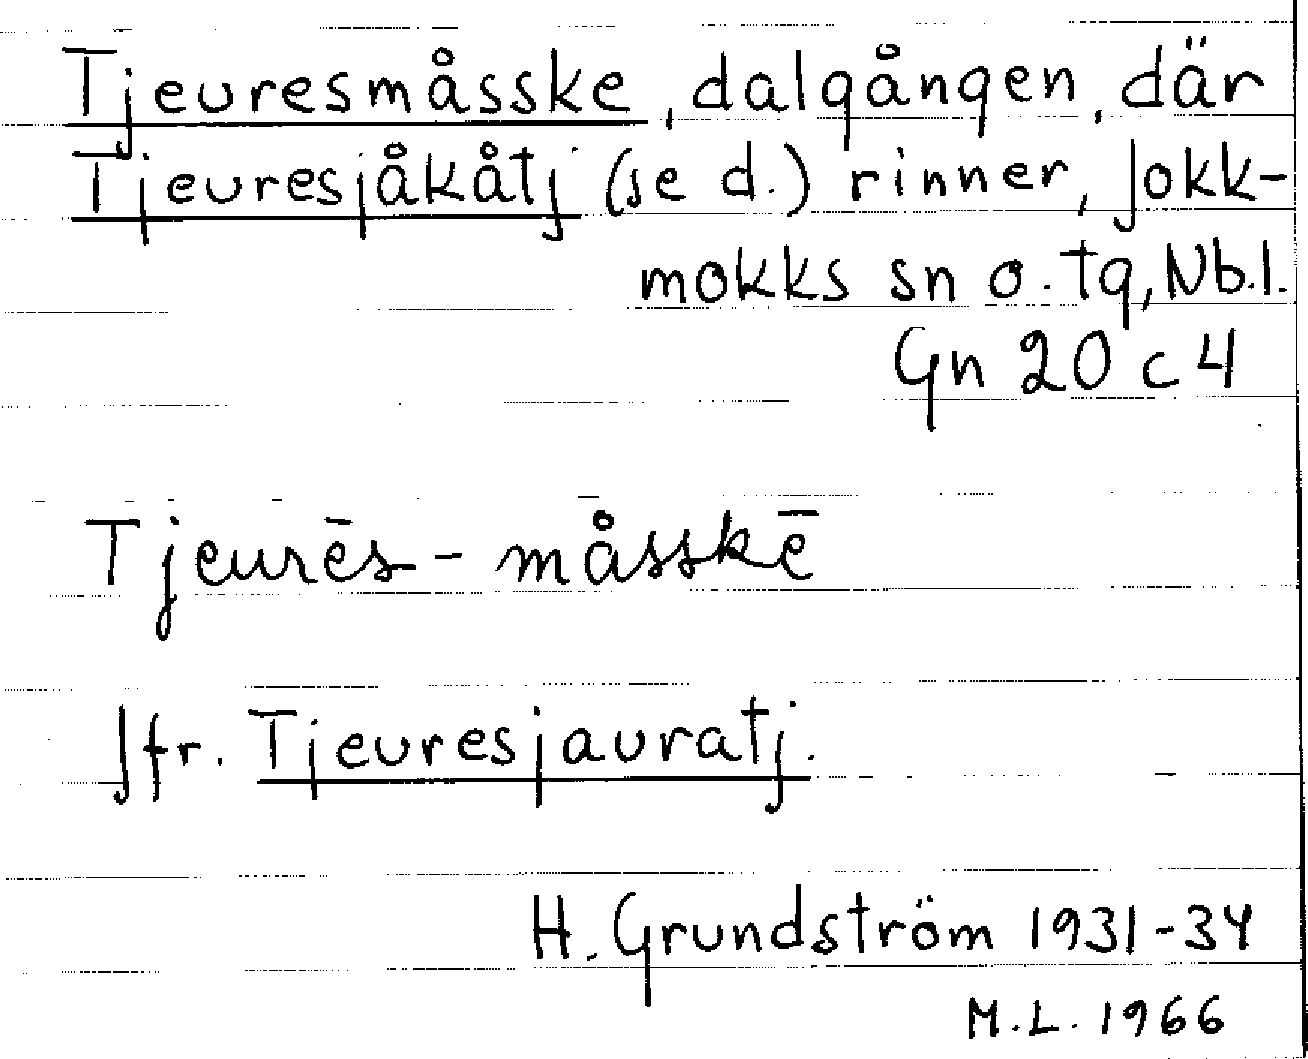 Tjeuresmåsske, dalgången, där
Tjeuresjåkåtj (se d.) rinner, Jokk-
mokks sn o. tg, Nb.l.
Gn 20 c 4
Tjeurēs-måsskē
Jfr. Tjeuresjauratj.
H. Grundström 1931-34
M.L. 1966